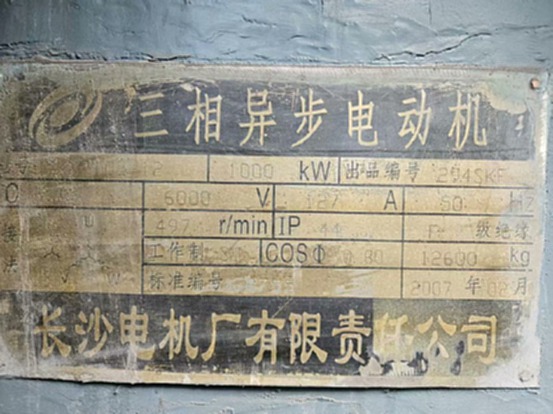 三相异步电动机
号 2 1000 kW 出品编号 204SKF
C 6000 V 127 A 50 Hz
接 497 r/min IP 44 F 级绝缘
法 工作制 COSΦ 0.80 12600 kg
标准编号 2007 年 02 月
长沙电机厂有限责任公司